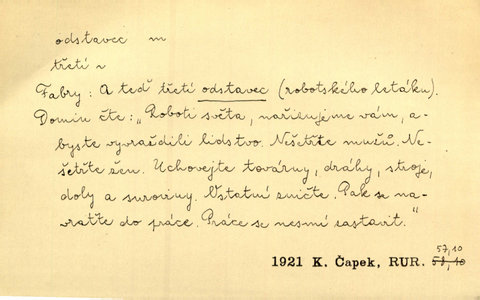 odstavec m
třetí ~
Fabry: A teď třetí odstavec (robotského letáku).
Domin čte: „Roboti světa, nařizujeme vám, a-
byste vyvraždili lidstvo. Nešetřte mužů. Ne-
šetřte žen. Uchovejte továrny, dráhy, stroje,
doly a suroviny. Ostatní zničte. Pak se na-
vraťte do práce. Práce se nesmí zastavit."
57,10
1921 K. Čapek, RUR. 58,10